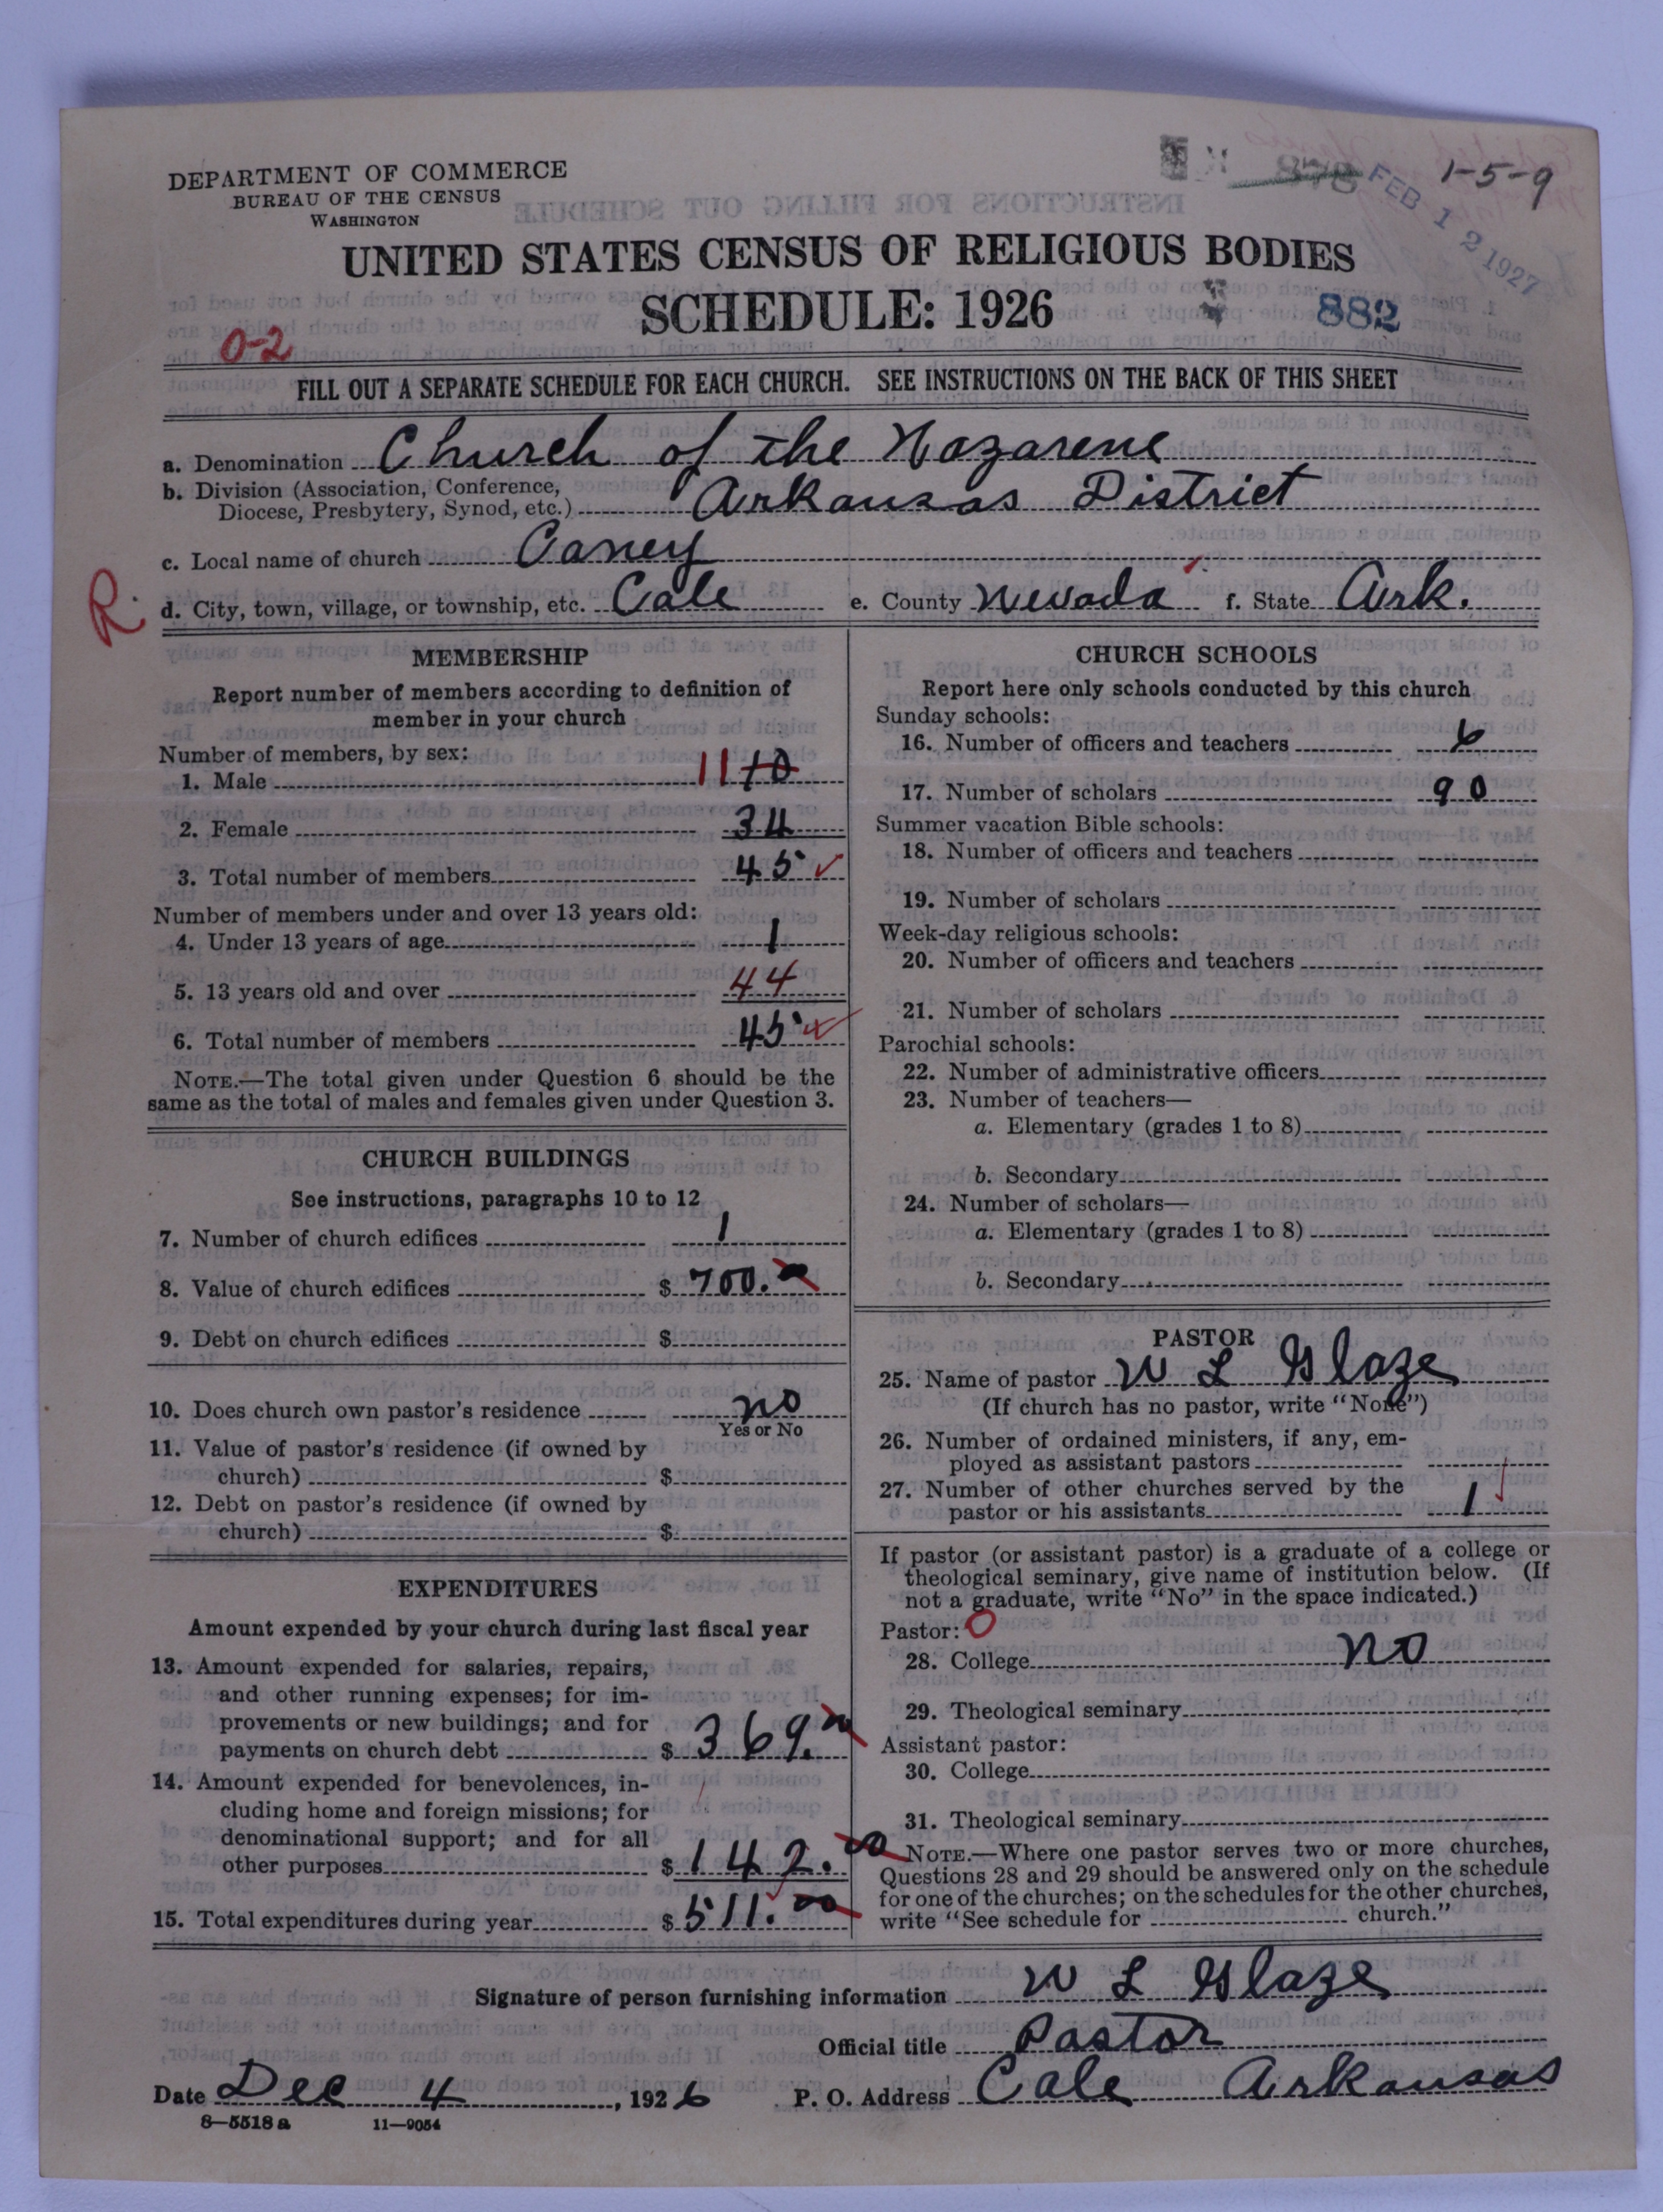 DEPARTMENT OF COMMERCE
BUREAU OF THE CENSUS
WASHINGTON
1-5-9
FEB 12 1927
UNITED STATES CENSUS OF RELIGIOUS BODIES
SCHEDULE: 1926
882
0-2
FILL OUT A SEPARATE SCHEDULE FOR EACH CHURCH. SEE INSTRUCTIONS ON THE BACK OF THIS SHEET
a. Denomination Church of the Nazarene
b. Division (Association, Conference, Diocese, Presbytery, Synod, etc.) Arkansas District
c. Local name of church Caney
R.
d. City, town, village, or township, etc. Cale e. County Nevada f. State Ark.
MEMBERSHIP
Report number of members according to definition of
member in your church
Number of members, by sex:
1. Male 11 10
2. Female 34
3. Total number of members 45
Number of members under and over 13 years old:
4. Under 13 years of age 1
5. 13 years old and over 44
6. Total number of members 45
NOTE.—The total given under Question 6 should be the
same as the total of males and females given under Question 3.
CHURCH BUILDINGS
See instructions, paragraphs 10 to 12
7. Number of church edifices 1
8. Value of church edifices $ 700.00
9. Debt on church edifices $
10. Does church own pastor's residence no
Yes or No
11. Value of pastor's residence (if owned by
church) $
12. Debt on pastor's residence (if owned by
church) $
EXPENDITURES
Amount expended by your church during last fiscal year
13. Amount expended for salaries, repairs,
and other running expenses; for im-
provements or new buildings; and for
payments on church debt $ 369.00
14. Amount expended for benevolences, in-
cluding home and foreign missions; for
denominational support; and for all
other purposes $ 142.00
15. Total expenditures during year $ 511.00
CHURCH SCHOOLS
Report here only schools conducted by this church
Sunday schools:
16. Number of officers and teachers 6
17. Number of scholars 90
Summer vacation Bible schools:
18. Number of officers and teachers
19. Number of scholars
Week-day religious schools:
20. Number of officers and teachers
21. Number of scholars
Parochial schools:
22. Number of administrative officers
23. Number of teachers—
a. Elementary (grades 1 to 8)
b. Secondary
24. Number of scholars—
a. Elementary (grades 1 to 8)
b. Secondary
PASTOR
25. Name of pastor W L Glaze
(If church has no pastor, write "None")
26. Number of ordained ministers, if any, em-
ployed as assistant pastors
27. Number of other churches served by the
pastor or his assistants 1
If pastor (or assistant pastor) is a graduate of a college or
theological seminary, give name of institution below. (If
not a graduate, write "No" in the space indicated.)
Pastor: 0
28. College no
29. Theological seminary
Assistant pastor:
30. College
31. Theological seminary
NOTE.—Where one pastor serves two or more churches,
Questions 28 and 29 should be answered only on the schedule
for one of the churches; on the schedules for the other churches,
write "See schedule for church."
Signature of person furnishing information W L Glaze
Official title Pastor
Date Dec 4, 1926 P. O. Address Cale Arkansas
8-5518 a 11-9054